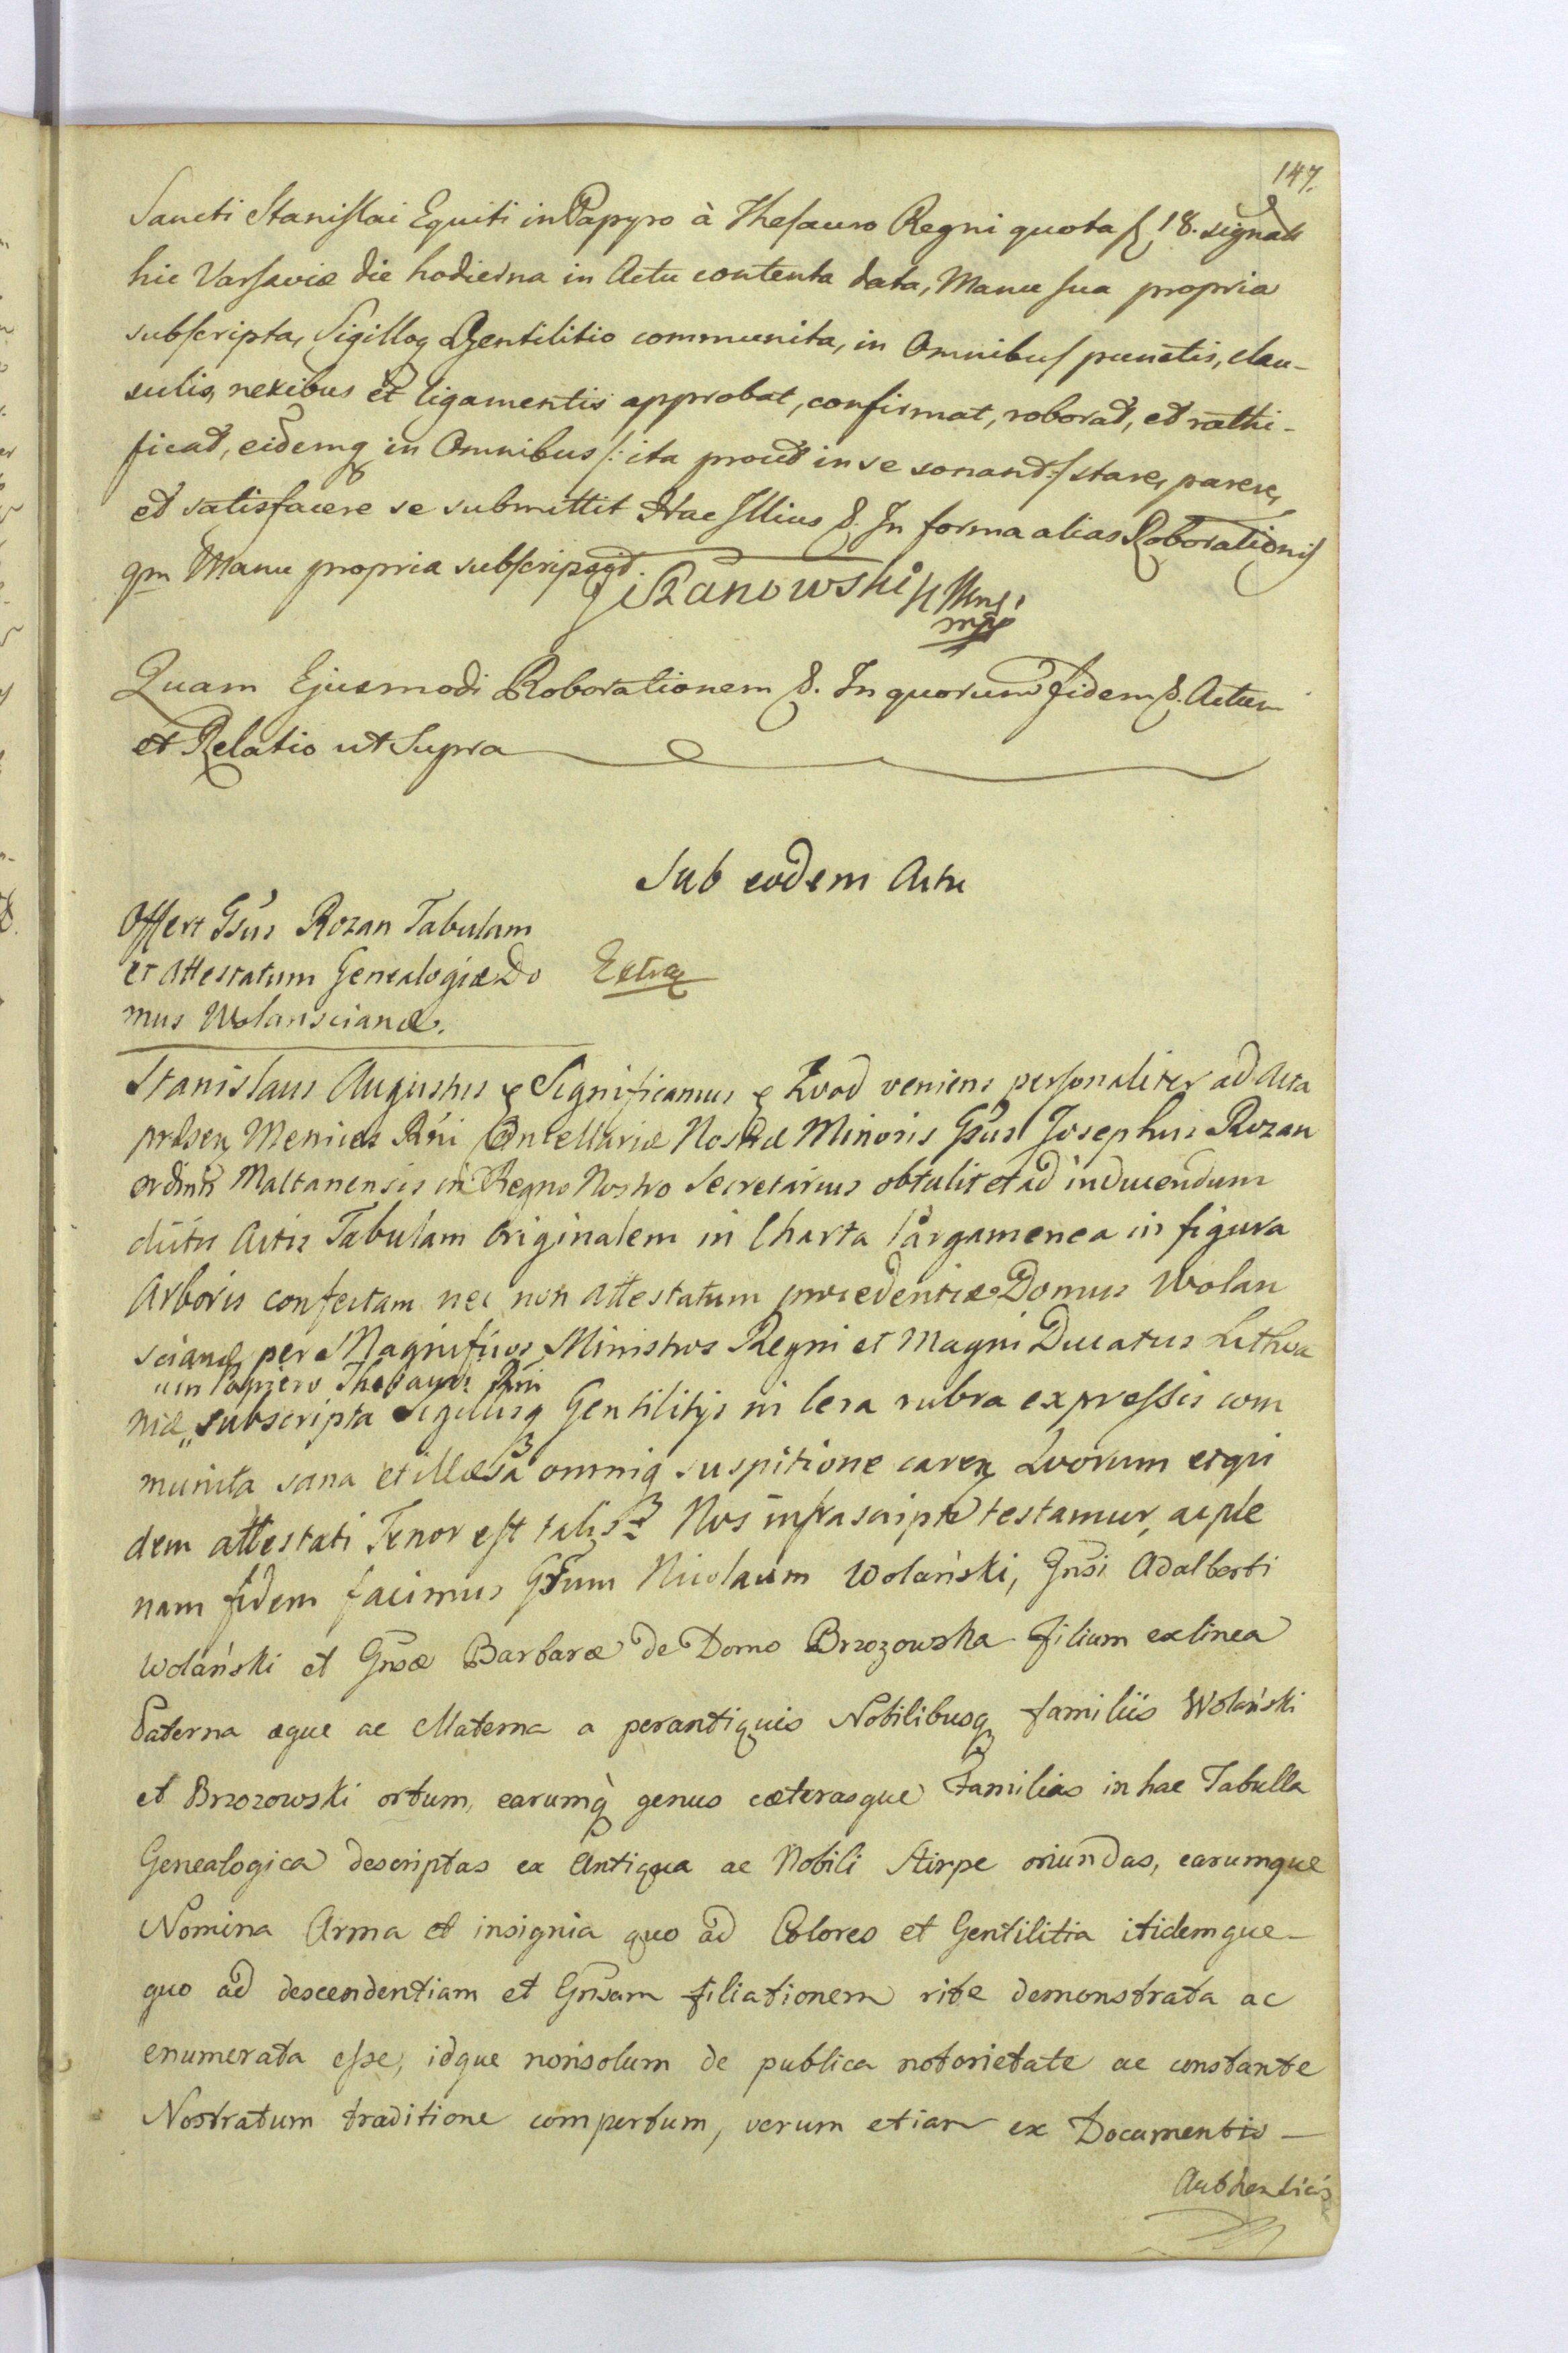 147.
Sancti Stanislai Equiti in Papyro à Thesauro Regni quota ƒ 18. signata
hic Varsaviæ die hodierna in Actu contenta data, Manu sua propria
subscripta, Sigilloq Gentilitio communita, in Omnibus punctis, clau-
sulis, nexibus et ligamentis approbat, confirmat, roborat, et rathi-
ficat, eidemq in Omnibus /: ita prout in se sonant :/ stare, parere,
et satisfacere se submittit Hac Illius &. In forma alias Roborationis
qm Manu propria subscripsit.
mpp
Quam Ejusmodi Roborationem &. In quorum fidem &. Actum
et Relatio ut Supra
Sub eodem Actu
Offert Gsus Rozan Tabulam
et Attestatum Genealogiæ Do
mus Wolanscianæ.
Extrq
Stanislaus Augustus & Significamus & Quod veniens personaliter ad Acta
præsen Metrices Rni Cancellariæ Nostræ Minoris Gsus Josephus Rozan
ordinis Maltanensis in Regno Nostro Secretarius obtulit et ad inducendum
diitis Actis Tabulam Originalem in Charta Pargamenea in figura
Arboris confectam nec non Attestatum procedentiæ Domus Wolan
scianæ per Magnificos Ministros Regni et Magni Ducatus Lithva
in Papiero Thesauri Rni
niæ „ subscripta Sigillisq Gentilitys in cera rubra expressis com
munita sana et illæsa omniq suspitione caren Quorum etqui
dem attestati Tenor est talis Nos infrascripti testamur, ac ple
nam fidem facimus Gsum Nicolaum Wolański, Gnsi Adalberti
Wolański et Gnsæ Barbaræ de Domo Brzozowska filium ex linea
Paterna æque ac Materna a perantiquis Nobilibusq familiis Wolański
et Brzozowski ortum, earumq̀ genus cæterasque Familias in hac Tabulla
Genealogica descriptas ex Antiqua ac Nobili Stirpe oriundas, earumque
Nomina Arma et insignia quo ad Colores et Gentilitia itidemque
quo ad descendentiam et Gnsam filiationem rite demonstrata ac
enumerata esse, idque nonsolum de publica notorietate ac constante
Nostratum traditione compertum, verum etiam ex Documentis
Authenticis